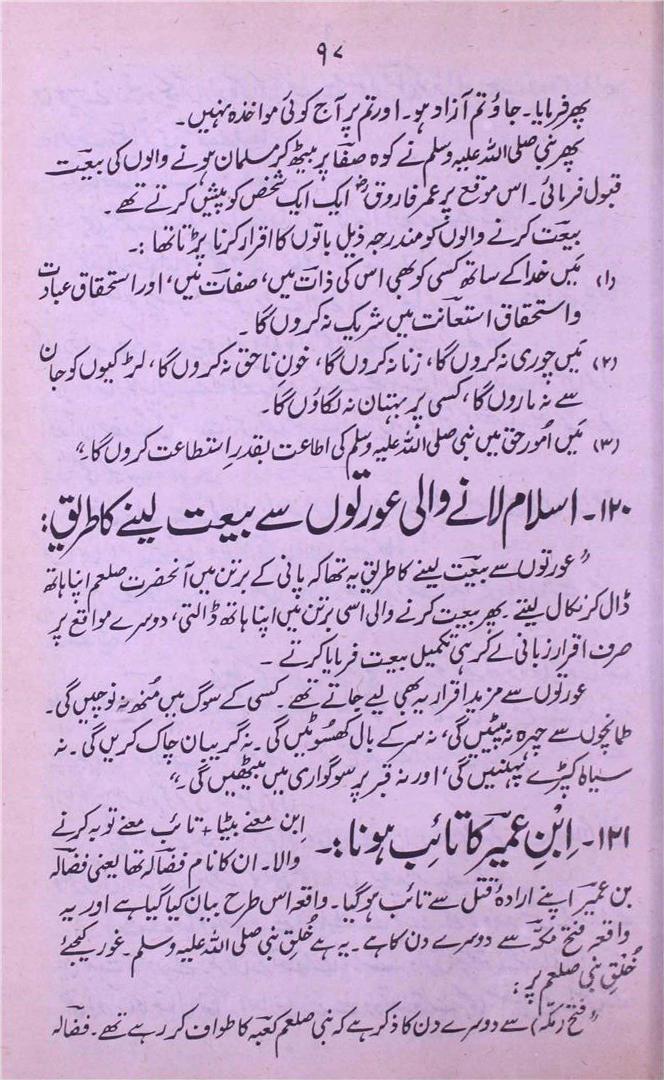 ۹۷
پھر فرمایا۔ جاؤ تم آزاد ہو۔ اور تم پر آج کوئی مواخذہ نہیں۔
پھر نبی صلی اللہ علیہ وسلم نے کوہ صفا پر بیٹھ کر مسلمان ہونے والوں کی بیعت
قبول فرمائی۔ اس موقع پر عمر فاروقؓ ایک ایک شخص کو پیش کرتے تھے۔
بیعت کرنے والوں کو مندرجہ ذیل باتوں کا اقرار کرنا پڑتا تھا :۔
(۱) میں خدا کے ساتھ کسی کو بھی اس کی ذات میں، صفات میں، اور استحقاق عبادت
و استحقاق استعانت میں شریک نہ کروں گا۔
(۲) میں چوری نہ کروں گا، زنا نہ کروں گا، خونِ ناحق نہ کروں گا، لڑکیوں کو جان
سے نہ ماروں گا، کسی پر بہتان نہ لگاؤں گا۔
(۳) میں اُمور حق میں نبی صلی اللہ علیہ وسلم کی اطاعت بقدرِ استطاعت کروں گا۔"
۱۲۰۔ اسلام لانے والی عورتوں سے بیعت لینے کا طریق:
"عورتوں سے بیعت لینے کا طریق یہ تھا کہ پانی کے برتن میں آنحضرت صلعم اپنا ہاتھ
ڈال کر نکال لیتے۔ پھر بیعت کرنے والی اسی برتن میں اپنا ہاتھ ڈالتی، دوسرے مواقع پر
صرف اقرار زبانی لے کر ہی تکمیل بیعت فرمایا کرتے۔
عورتوں سے مزید اقرار یہ بھی لیے جاتے تھے۔ کسی کے سوگ میں مُنھ نہ نوچیں گی۔
طمانچوں سے چہرہ نہ پیٹیں گی، نہ سر کے بال کھسوٹیں گی۔ نہ گریبان چاک کریں گی۔ نہ
سیاہ کپڑے پہنیں گی، اور نہ قبر پر سوگواری میں بیٹھیں گی۔"
۱۲۱۔ اِبْنِ عمیر کا تائِب ہونا :۔ اِبن معنے بیٹا + تائب معنے توبہ کرنے
والا۔ ان کا نام فضالہ تھا یعنی فضالہ
بن عمیر اپنے ارادۂ قتل سے تائب ہوگیا۔ واقعہ اس طرح بیان کیا گیا ہے اور یہ
واقعہ فتح مکہ سے دوسرے دن کا ہے۔ یہ ہے خُلقِ نبی صلی اللہ علیہ وسلم۔ غور کیجئے
خُلقِ نبی صلعم پر :
"فتح (مکہ) سے دوسرے دن کا ذکر ہے کہ نبی صلعم کعبہ کا طواف کر رہے تھے۔ فضالہ